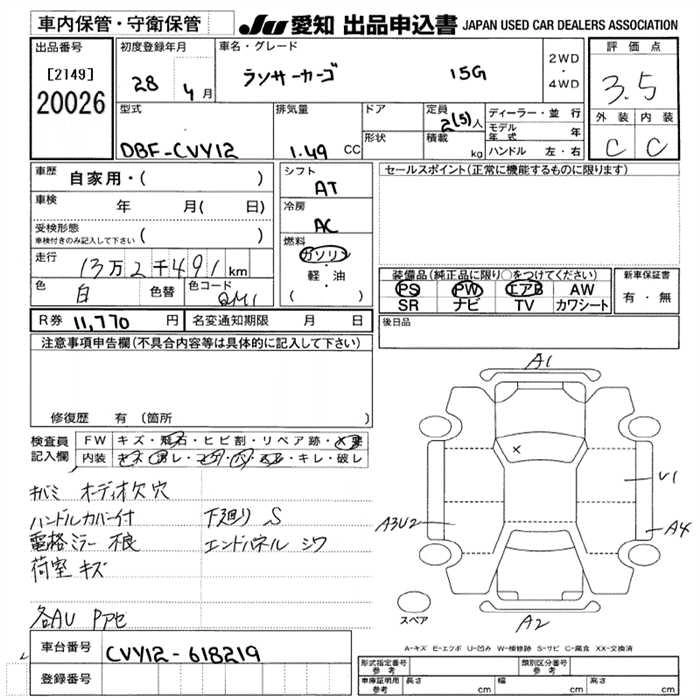 車内保管・守衛保管
JU 愛知 出品申込書 JAPAN USED CAR DEALERS ASSOCIATION
出品番号
[2149]
20026
初度登録年月
28 4月
車名・グレード
ランサーカーゴ 15G
2WD
・
4WD
評価点
3.5
外装 内装
C C
型式
DBF-CVY12
排気量
1.49 CC
ドア
形状
定員
2(5)人
積載
kg
ディーラー・並行
モデル年式 年
ハンドル 左・右
車歴
自家用・( )
車検
年 月( 日)
受検形態
車検付きのみ記入して下さい ( )
走行
13万2千491km
色
白
色替
色コード
QM1
シフト
AT
冷房
AC
燃料
ガソリン
・
軽・油
( )
セールスポイント(正常に機能するものに限ります)
装備品(純正品に限り○をつけてください)
PS PW エアB AW
SR ナビ TV カワシート
新車保証書
有・無
R券 11,770 円
名変通知期限 月 日
後日品
注意事項申告欄(不具合内容等は具体的に記入して下さい)
修復歴 有 (箇所 )
検査員記入欄
FW キズ・飛石・ヒビ割・リペア跡・X要
内装 キズ・汚レ・コゲ・穴・スレ・キレ・破レ
キバミ オーディオ欠 穴
ハンドルカバー付 下廻り S
電格ミラー 不良 エンドパネル シワ
荷室 キズ
各AU Pアセ
A1
X
V1
A3U2
A4
A2
スペア
A-キズ E-エクボ U-凹み W-補修跡 S-サビ C-腐食 XX-交換済
車台番号
CVY12-618219
登録番号
形式指定番号
参考
類別区分番号
参考
車庫証明用
参考
長さ cm
幅 cm
高さ cm